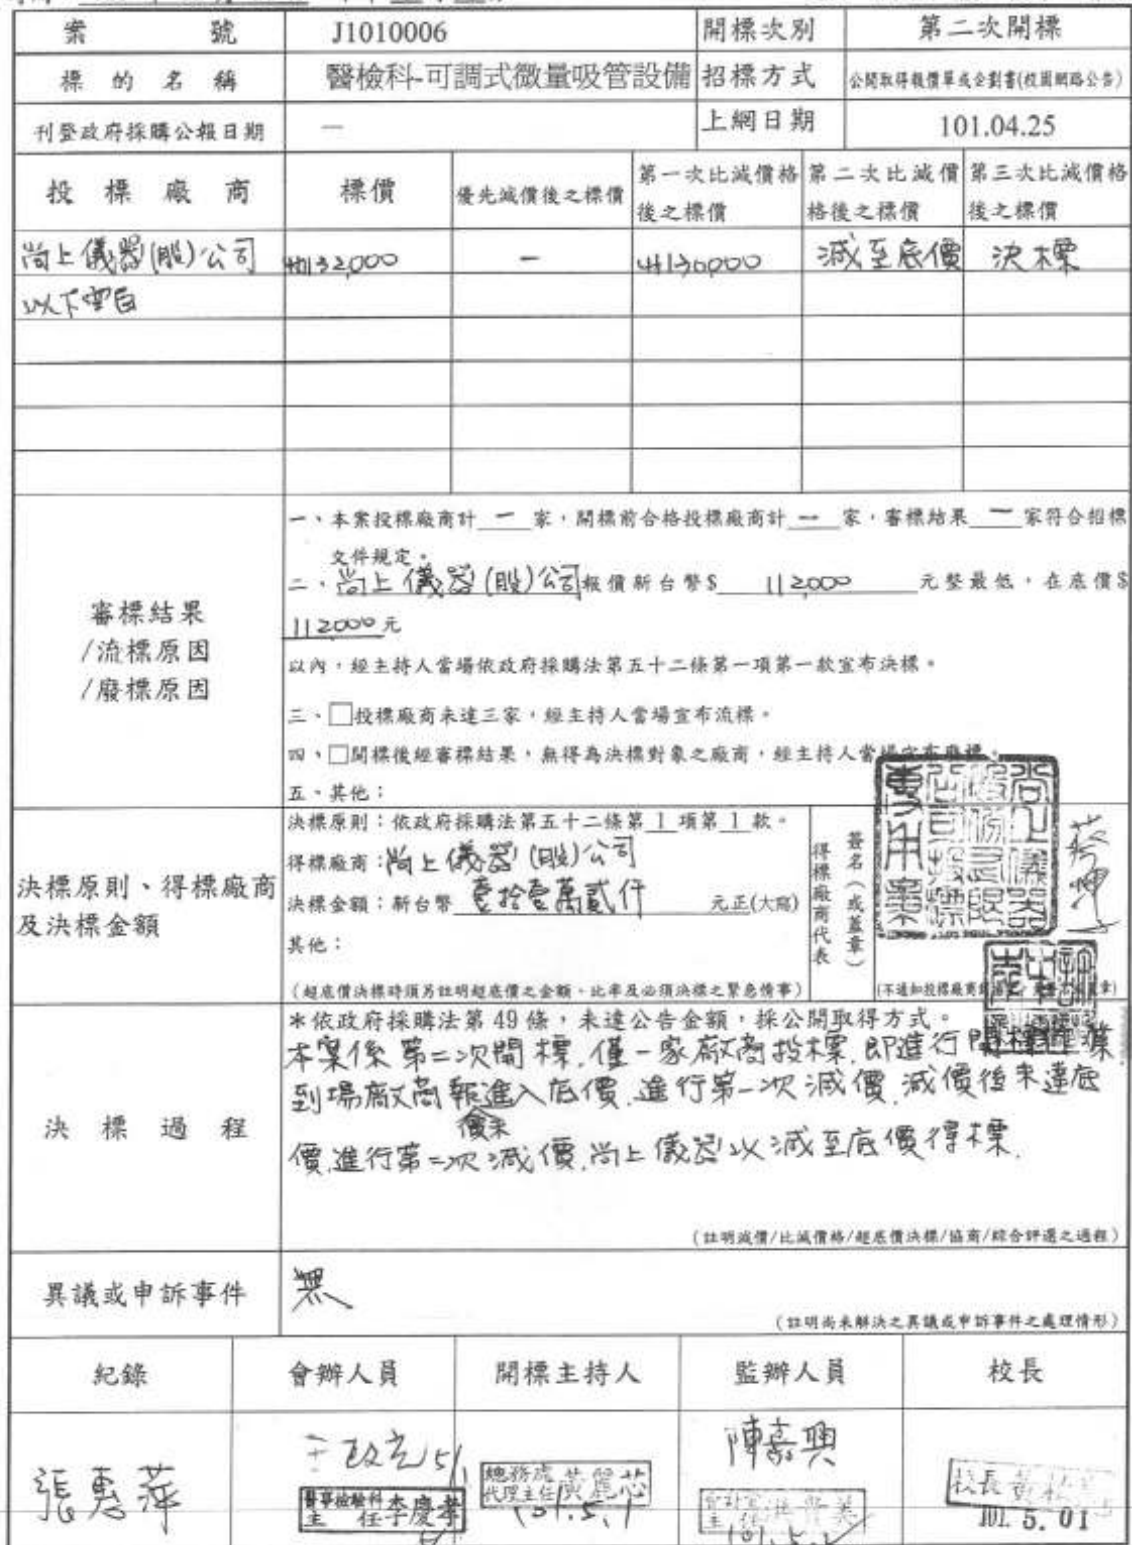 案 號 J1010006 開標次別 第二次開標
標 的 名 稱 醫檢科-可調式微量吸管設備 招標方式 公開取得報價單或企劃書(校園網路公告)
刊登政府採購公報日期 — 上網日期 101.04.25
投 標 廠 商 標價 優先減價後之標價 第一次比減價格後之標價 第二次比減價格後之標價 第三次比減價格後之標價
尚上儀器(股)公司 132,000 — 130000 減至底價 決標
以下空白
審標結果
/流標原因
/廢標原因
一、本案投標廠商計 一 家,開標前合格投標廠商計 一 家,審標結果 一 家符合招標
文件規定。
二、尚上儀器(股)公司報價新台幣$ 112,000 元整最低,在底價$
112000元
以內,經主持人當場依政府採購法第五十二條第一項第一款宣布決標。
三、□投標廠商未達三家,經主持人當場宣布流標。
四、□開標後經審標結果,無得為決標對象之廠商,經主持人當場宣布廢標。
五、其他:
決標原則、得標廠商
及決標金額
決標原則:依政府採購法第五十二條第 1 項第 1 款。
得標廠商:尚上儀器(股)公司
決標金額:新台幣 壹拾壹萬貳仟 元正(大寫)
其他:
(超底價決標時須另註明超底價之金額、比率及必須決標之緊急情事)
得標廠商代表
簽名(或蓋章)
(不通知投標廠商
決 標 過 程
*依政府採購法第 49 條,未達公告金額,採公開取得方式。
本案係第二次開標,僅一家廠商投標,即進行開標
到場廠商報進入底價,進行第一次減價,減價後未達底
價未
價,進行第二次減價,尚上儀器以減至底價得標.
(註明減價/比減價格/超底價決標/協商/綜合評選之過程)
異議或申訴事件 無
(註明尚未解決之異議或申訴事件之處理情形)
紀錄 會辦人員 開標主持人 監辦人員 校長
張惠萍 5/1 陳嘉興
醫事檢驗科主任 李慶孝
總務處代理主任 黃麗芯
101.5.1
校長 黃
101. 5. 01